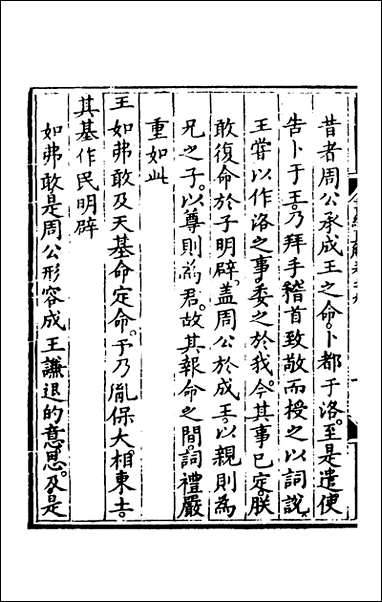 昔者周公承成王之命卜都于洛至是遣使
告卜于王乃拜手稽首致敬而授之以詞説
王嘗以作洛之事委之於我今其事已定朕
敢復命於子明辟蓋周公於成王以親則為
兄之子以尊則為君故其報命之間詞禮嚴
重如此
王如弗敢及天基命定命予乃胤保大相東土
其基作民明辟
如弗敢是周公形容成王謙退的意思及是